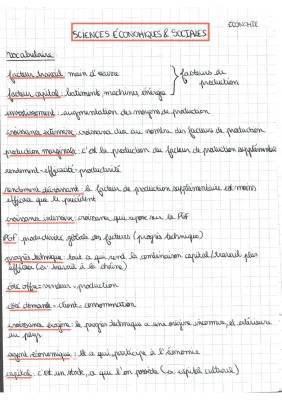 ÉCONOMIE
SCIENCES ÉCONOMIQUES & SOCIALES
vocabulaire
facteur travail: main d'œuvre
facteurs de production
facteur capital: batiments, machines, énergie
investissement: augmentation des moyens de production
croissance extensive: croissance due au nombre des facteurs de production
production marginale: c'est la production du facteur de production supplémentaire
rendement = efficacité = productivité
rendement décroissant: le facteur de production supplémentaire est moins
efficace que le précédent
croissance intensive: croissance qui repose sur la PGF
PGF: productivité globale des facteurs (progrès technique)
progrès technique: tout ce qui rend la combinaison capital/travail plus
efficace (ex: travail à la chaîne)
côté offre = vendeur = production
côté demande = client = consommation
croissance exogène: le progrès technique a une origine inconnue, et extérieure
au pays
agent économique: tt ce qui participe à l'économie
capital: c'est un stock, ce que l'on possède (ex: capital culturel)